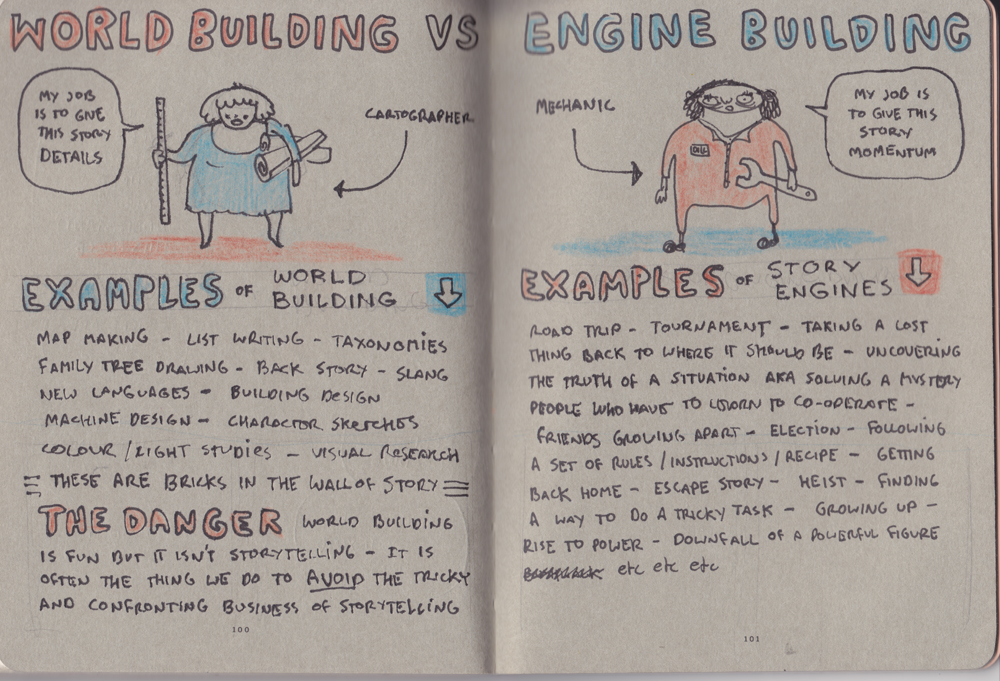 WORLD BUILDING VS
MY JOB
IS TO GIVE
THIS STORY
DETAILS
CARTOGRAPHER
EXAMPLES OF WORLD
BUILDING
MAP MAKING - LIST WRITING - TAXONOMIES
FAMILY TREE DRAWING - BACK STORY - SLANG
NEW LANGUAGES - BUILDING DESIGN
MACHINE DESIGN - CHARACTER SKETCHES
COLOUR / LIGHT STUDIES - VISUAL RESEARCH
THESE ARE BRICKS IN THE WALL OF STORY
THE DANGER WORLD BUILDING
IS FUN BUT IT ISN'T STORYTELLING - IT IS
OFTEN THE THING WE DO TO AVOID THE TRICKY
AND CONFRONTING BUSINESS OF STORYTELLING
100
ENGINE BUILDING
MECHANIC
MY JOB IS
TO GIVE THIS
STORY
MOMENTUM
EXAMPLES OF STORY
ENGINES
ROAD TRIP - TOURNAMENT - TAKING A LOST
THING BACK TO WHERE IT SHOULD BE - UNCOVERING
THE TRUTH OF A SITUATION AKA SOLVING A MYSTERY
PEOPLE WHO HAVE TO LEARN TO CO-OPERATE -
FRIENDS GROWING APART - ELECTION - FOLLOWING
A SET OF RULES / INSTRUCTIONS / RECIPE - GETTING
BACK HOME - ESCAPE STORY - HEIST - FINDING
A WAY TO DO A TRICKY TASK - GROWING UP -
RISE TO POWER - DOWNFALL OF A POWERFUL FIGURE
etc etc etc
101